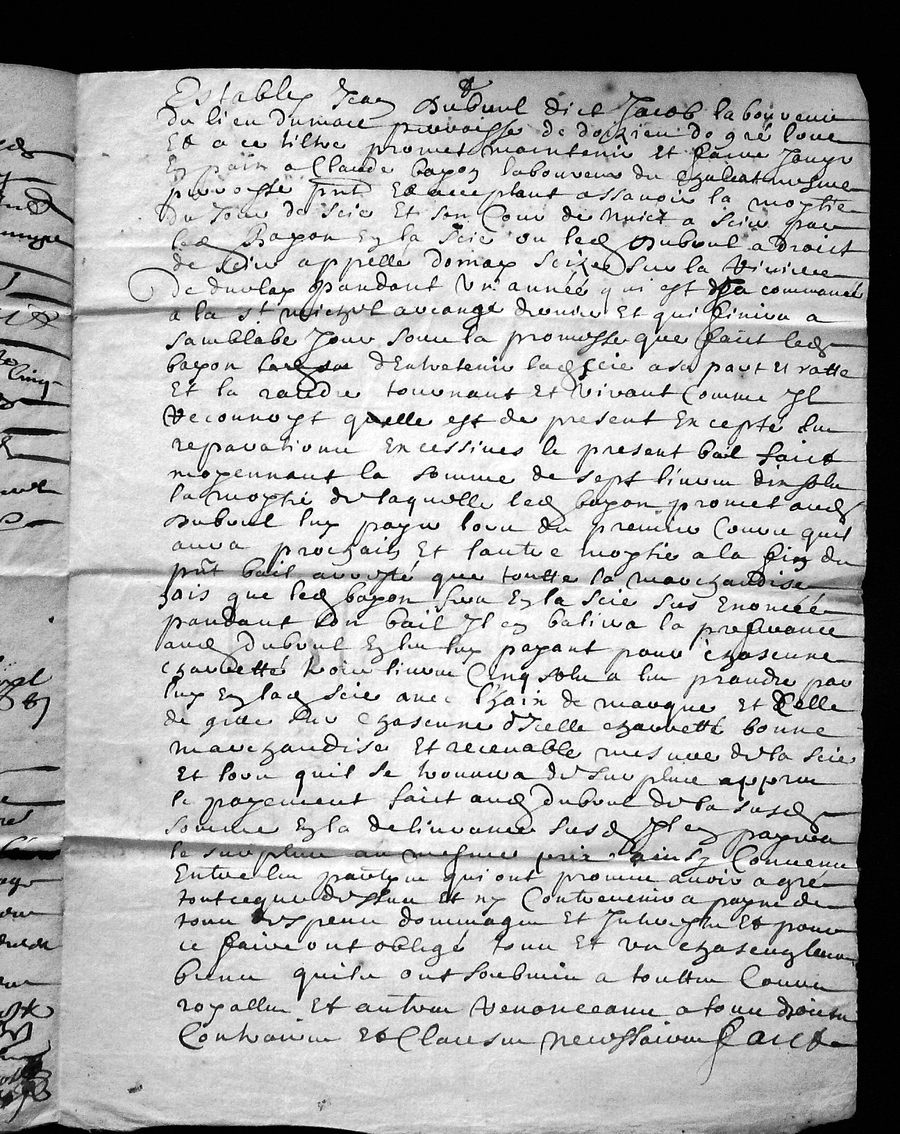 Estably Jean Dubout dict Jacob laboureur
du lieu du mare parroisse de de gré loue
Et a ce tiltre promet maintenir et faire Jouyr
En paix a Claude bayon laboureur du mesme
parroisse pnt Et acceptant assavoir la moytie
du Jour de scie Et son Cour de nuict a scier par
led Bayon En la scie ou led Dubout a droict
de scier appelle domay scize sur la riviere
de duolay pandant un année qui est commancé
a la st michel arcange dernier Et qui finira a
samblable Jour soubz la promesse que faict led
bayon d'Entretenir lad scie a sa part Et ratte
Et la randre tournant Et virant Comme Il
recounoyst quelle est de present Excepte des
reparations Excessives le present bail faict
moyennant la somme de sept livres dix solz
la moytie de laquelle led bayon promet aud
Dubout luy payer lors du premier Cours quil
aura prochain Et lautre moytie a la fin du
pnt bail arresté que toutte la marchandise
jais que led bayon fera En la scie sus Enoncée
pandant son bail Il En balira la preferance
aud Dubout En luy payant pour chascune
charretté trois livres Cinq solz a les prandre par
luy En lad scie avec de marque Et Celle
de chascune d'Icelle charretté bonne
marchandise Et recevable mesure de la scie
Et lors quil se trouvera de surplus appres
le payement faict aud Dubout de la susd
somme En la delivrance susd Il En payera
le surplus au mesme prix ainsy Convenu
Entre les parties qui ont promis avoir agré
tout ceque dessus Et ny Contrevenir a payne de
tous despens dommages Et Interests Et pour
ce faire ont obligé tous Et un chascungs leurs
biens quils ont soubmis a touttes Cours
royalles Et autres renonceans a tous droicts
Contraires Et Clauses necessaires faict